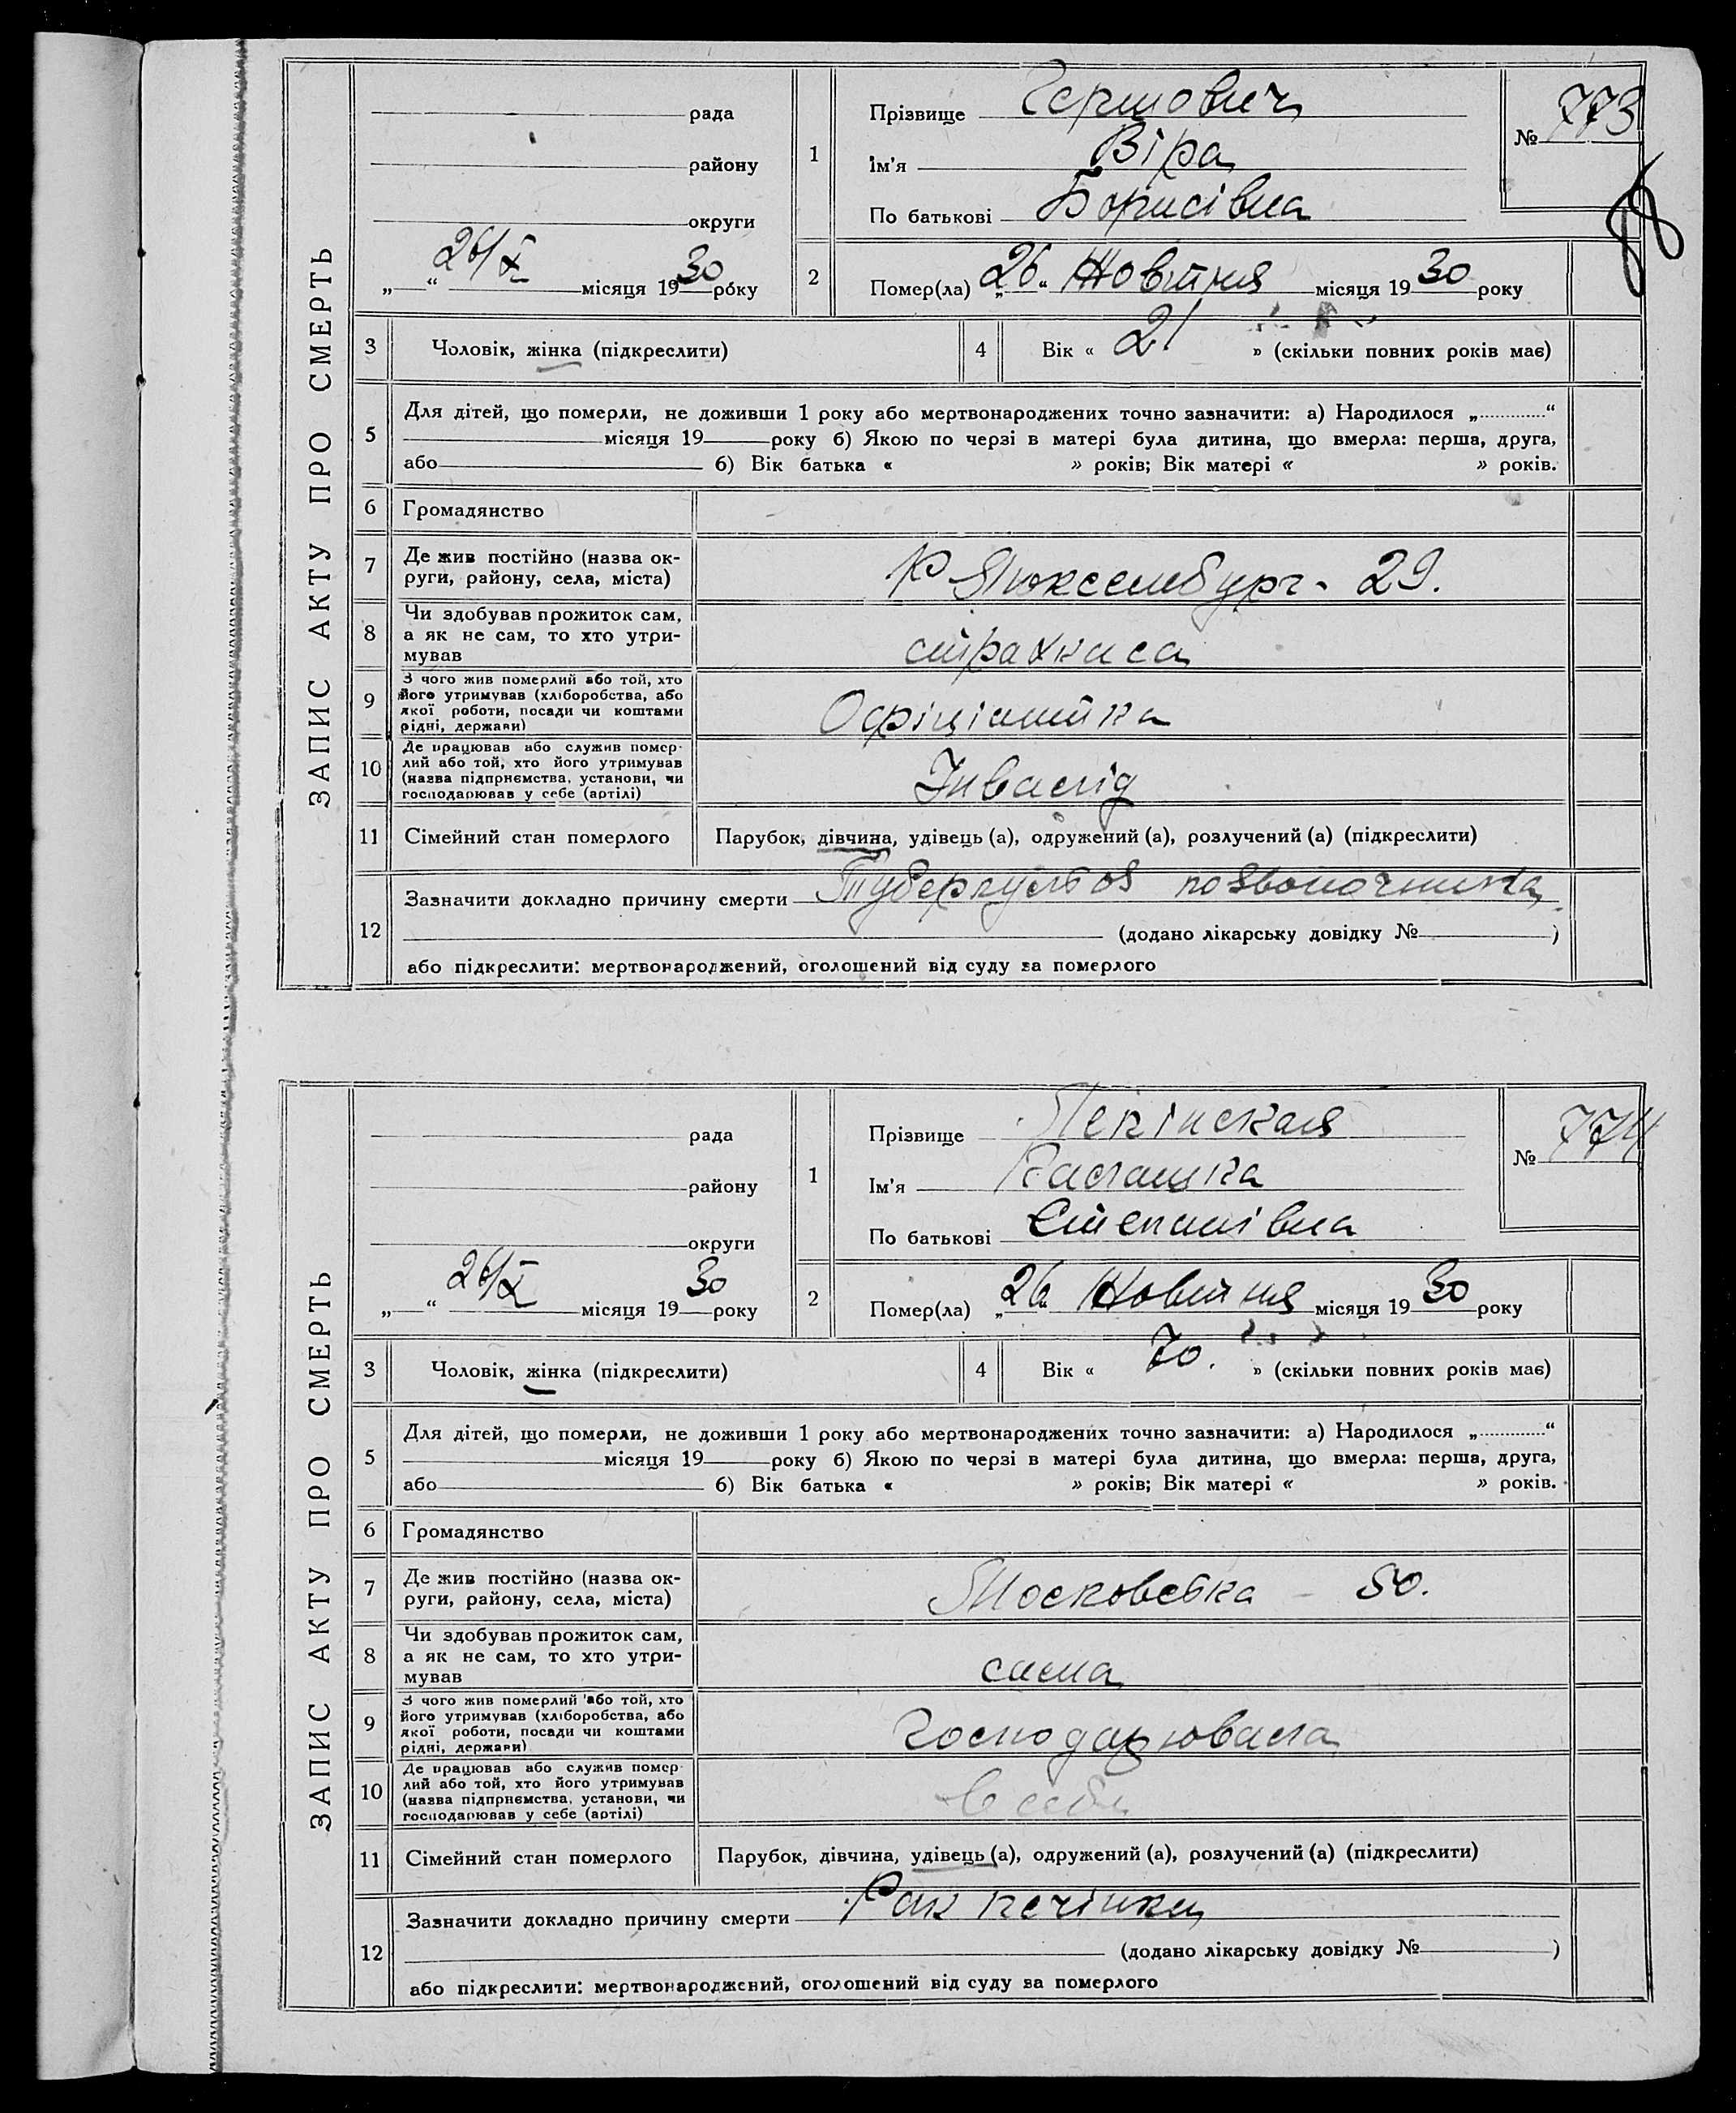 ЗАПИС АКТУ ПРО СМЕРТЬ
рада
району
округи
„ 26/X “ місяця 1930 року
1
Прізвище Гершович
Ім'я Віра
По батькові Борисівна
№ 773
88
2
Помер(ла) „26“ Жовтня місяця 1930 року
3
Чоловік, жінка (підкреслити)
4
Вік « 21 » (скільки повних років має)
5
Для дітей, що померли, не доживши 1 року або мертвонароджених точно зазначити: а) Народилося „ “
місяця 19 року б) Якою по черзі в матері була дитина, що вмерла: перша, друга,
або б) Вік батька « » років; Вік матері « » років.
6
Громадянство
7
Де жив постійно (назва ок-
руги, району, села, міста)
Р Люксембург - 29.
8
Чи здобував прожиток сам,
а як не сам, то хто утри-
мував
страхкаса
9
З чого жив померлий або той, хто
його утримував (хліборобства, або
якої роботи, посади чи коштами
рідні, держави)
Офіціянтка
10
Де працював або служив помер-
лий або той, хто його утримував
(назва підприємства, установи, чи
господарював у себе (артілі)
Інвалід
11
Сімейний стан померлого
Парубок, дівчина, удівець (а), одружений (а), розлучений (а) (підкреслити)
12
Зазначити докладно причину смерти Туберкульоз позвоночника
(додано лікарську довідку № )
або підкреслити: мертвонароджений, оголошений від суду за померлого
ЗАПИС АКТУ ПРО СМЕРТЬ
рада
району
округи
„ 26/X “ місяця 1930 року
1
Прізвище
Ім'я
По батькові Степанівна
№ 774
2
Помер(ла) „26“ Жовтня місяця 1930 року
3
Чоловік, жінка (підкреслити)
4
Вік « 70. » (скільки повних років має)
5
Для дітей, що померли, не доживши 1 року або мертвонароджених точно зазначити: а) Народилося „ “
місяця 19 року б) Якою по черзі в матері була дитина, що вмерла: перша, друга,
або б) Вік батька « » років; Вік матері « » років.
6
Громадянство
7
Де жив постійно (назва ок-
руги, району, села, міста)
Московська - 50.
8
Чи здобував прожиток сам,
а як не сам, то хто утри-
мував
сама
9
З чого жив померлий або той, хто
його утримував (хліборобства, або
якої роботи, посади чи коштами
рідні, держави)
Господарювала
10
Де працював або служив помер-
лий або той, хто його утримував
(назва підприємства, установи, чи
господарював у себе (артілі)
в себе
11
Сімейний стан померлого
Парубок, дівчина, удівець (а), одружений (а), розлучений (а) (підкреслити)
12
Зазначити докладно причину смерти Рак печінки
(додано лікарську довідку № )
або підкреслити: мертвонароджений, оголошений від суду за померлого